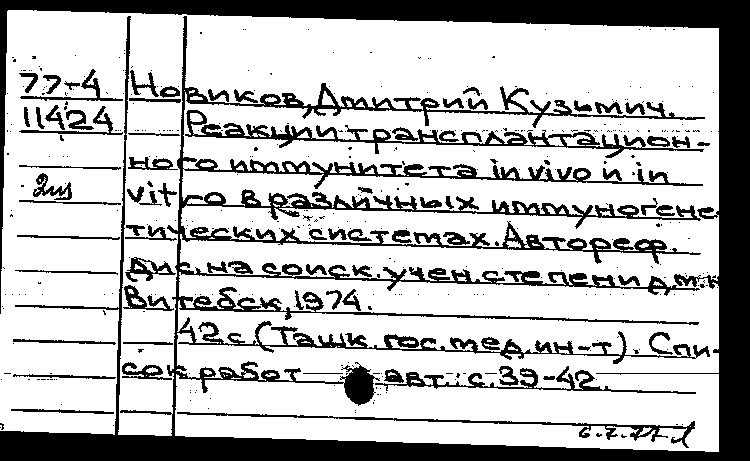 77-4 Новиков, Дмитрий Кузьмич.
11424 Реакции трансплантацион-
ного иммунитета in vivo и in
2из vitro в различных иммуногене-
тических системах. Автореф.
дис. на соиск. учен. степени д.м.н
Витебск, 1974.
42 с (Ташк. гос. мед. ин-т). Спи-
сок работ авт.: с. 39-42.